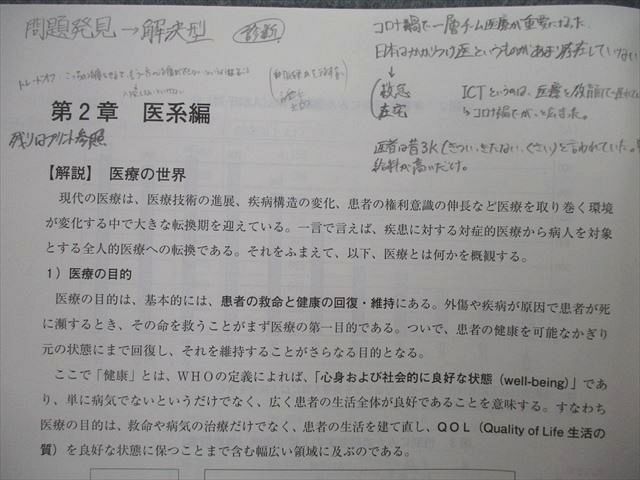 問題発見→解決型 診断
コロナ禍で一層チーム医療が重要になった
日本はかかりつけ医というものがあまり存在していない
トレードオフ
救急
在宅
ICTというのは、医療と教育で遅れて
→コロナ禍で
第2章 医系編
残りはプリント参照
医者は昔3K(きつい、きたない、くさい)と言われていた。
給料が高いだけ。
【解説】 医療の世界
現代の医療は、医療技術の進展、疾病構造の変化、患者の権利意識の伸長など医療を取り巻く環境
が変化する中で大きな転換期を迎えている。一言で言えば、疾患に対する対症的医療から病人を対象
とする全人的医療への転換である。それをふまえて、以下、医療とは何かを概観する。
1）医療の目的
医療の目的は、基本的には、患者の救命と健康の回復・維持にある。外傷や疾病が原因で患者が死
に瀕するとき、その命を救うことがまず医療の第一目的である。ついで、患者の健康を可能なかぎり
元の状態にまで回復し、それを維持することがさらなる目的となる。
ここで「健康」とは、WHOの定義によれば、「心身および社会的に良好な状態（well-being）」であ
り、単に病気でないというだけでなく、広く患者の生活全体が良好であることを意味する。すなわち
医療の目的は、救命や病気の治療だけでなく、患者の生活を建て直し、QOL（Quality of Life 生活の
質）を良好な状態に保つことまで含む幅広い領域に及ぶのである。